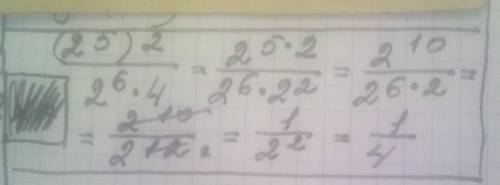 (2^5)2 / 2^6·4 = 2^5·2 / 2^6·2^2 = 2^10 / 2^6·2 =
= 2^10 / 2^12 = 1 / 2^2 = 1/4